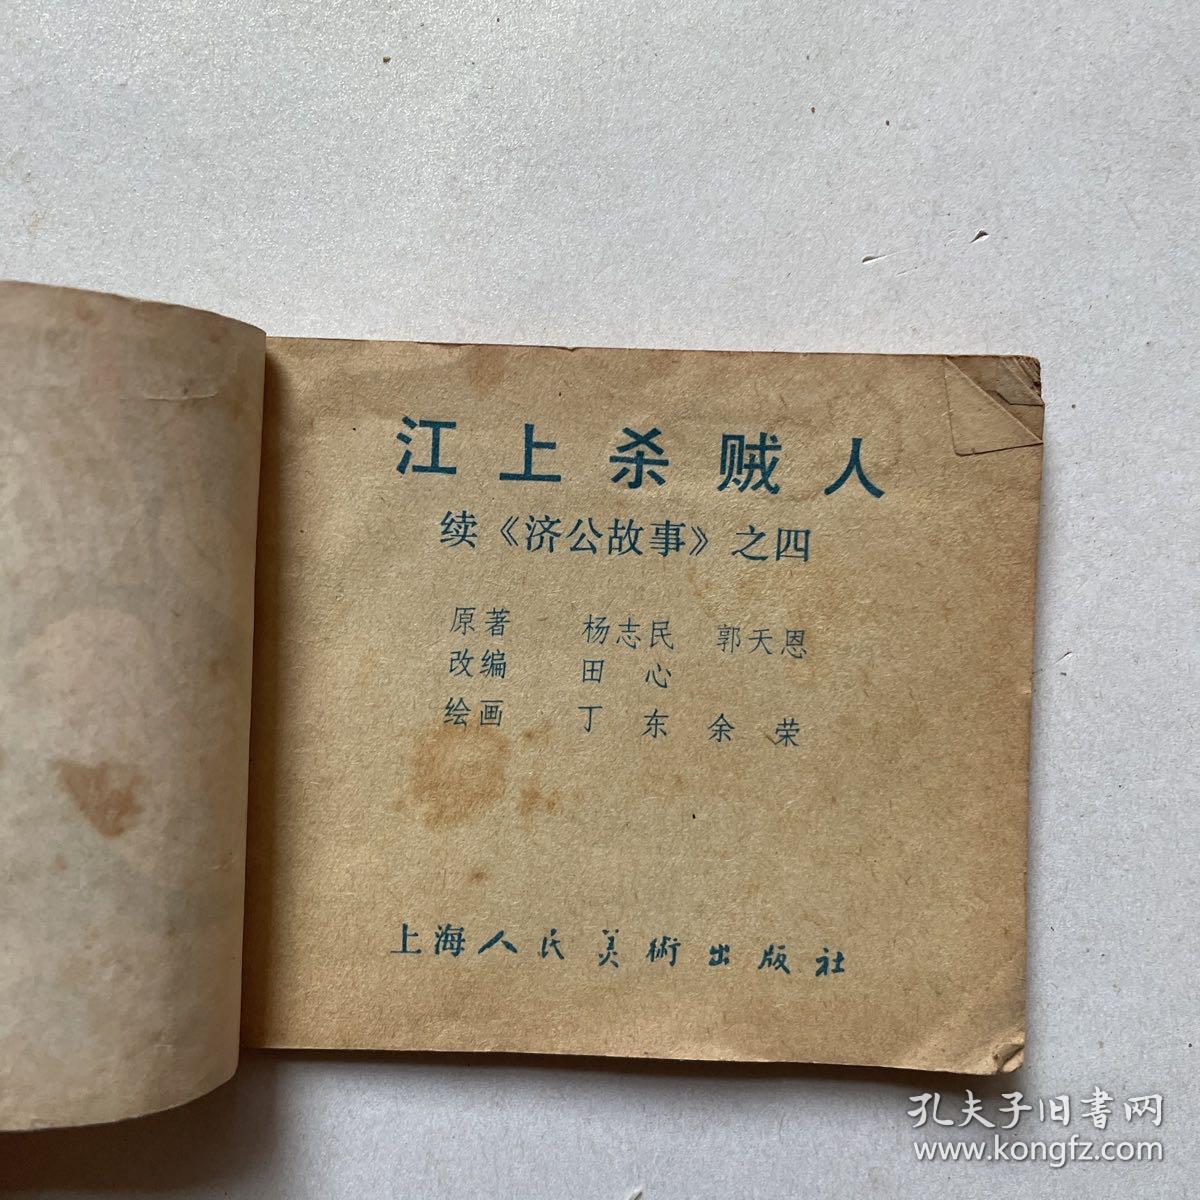 江上杀贼人
续《济公故事》之四
原著 杨志民 郭天恩
改编 田心
绘画 丁东 余荣
上海人民美術出版社
孔夫子旧書网
www.kongfz.com